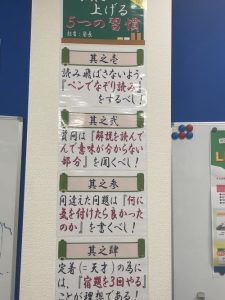 上げる
5つの習慣
其之壱
読み飛ばさないよう、
『ペンでなぞり読み』
をするべし!
其之弐
質問は『解説を読んで
んで意味が分からない
部分』を聞くべし!
其之参
間違えた問題は『何に
気を付けたら良かった
のか』を書くべし!
其之肆
定着(=天才)の為に
は、『宿題を3回やる』
ことが理想である!